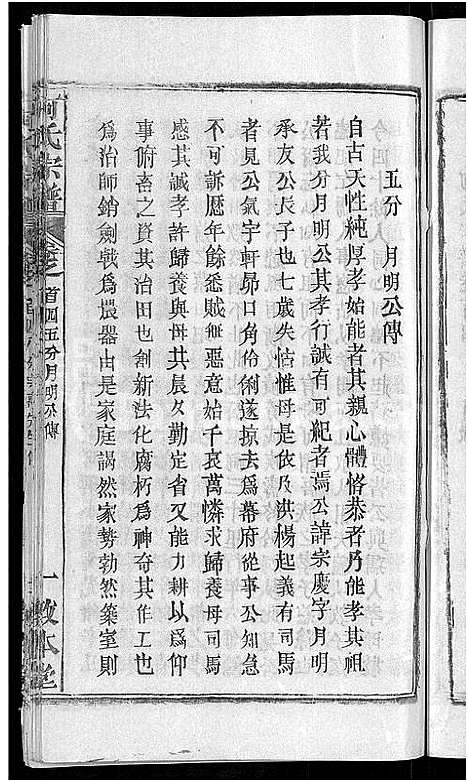 五分　月明公傳
自古天性純厚孝始能者其親心體恪恭者乃能孝其祖
若我分月明公其孝行誠有可紀者焉公諱宗慶字月明
承友公長子也七歲失怙惟母是依及洪楊起義有司馬
者見公氣宇軒昂口角伶俐遂掠去爲幕府從事公知急
不可訴歷年餘悉賊以始千哀萬憐求歸養母司馬
感其誠孝許歸養與母共晨夕勤定省又能力耕以爲仰
事俯畜之資其治田也創新法化腐朽爲神奇其作工也
爲治師銷劍戟爲農器由是家庭謁然家勢勃然築室則
氏宗譜
卷之首四五分月明公傳
一敦本堂